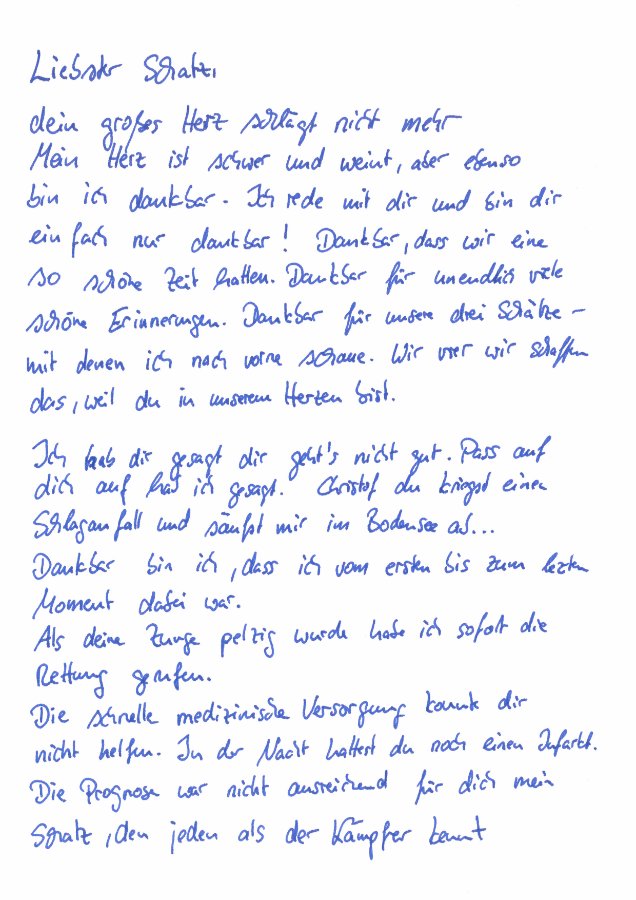 Liebster Schatz,
dein großes Herz schlägt nicht mehr
Mein Herz ist schwer und weint, aber ebenso
bin ich dankbar. Ich rede mit dir und bin dir
einfach nur dankbar! Dankbar, dass wir eine
so schöne Zeit hatten. Dankbar für unendlich viele
schöne Erinnerungen. Dankbar für unsere drei Schätze -
mit denen ich nach vorne schaue. Wir vier wir schaffen
das, weil du in unserem Herzen bist.
Ich hab dir gesagt dir geht's nicht gut. Pass auf
dich auf hab ich gesagt. Christof du kriegst einen
Schlaganfall und säufst mir im Bodensee ab...
Dankbar bin ich, dass ich vom ersten bis zum lezten
Moment dabei war.
Als deine Zunge pelzig wurde habe ich sofort die
Rettung gerufen.
Die schnelle medizinische Versorgung konnte dir
nicht helfen. In der Nacht hattest du noch einen Infarkt.
Die Prognose war nicht ausreichend für dich mein
Schatz, den jeden als der Kämpfer kennt